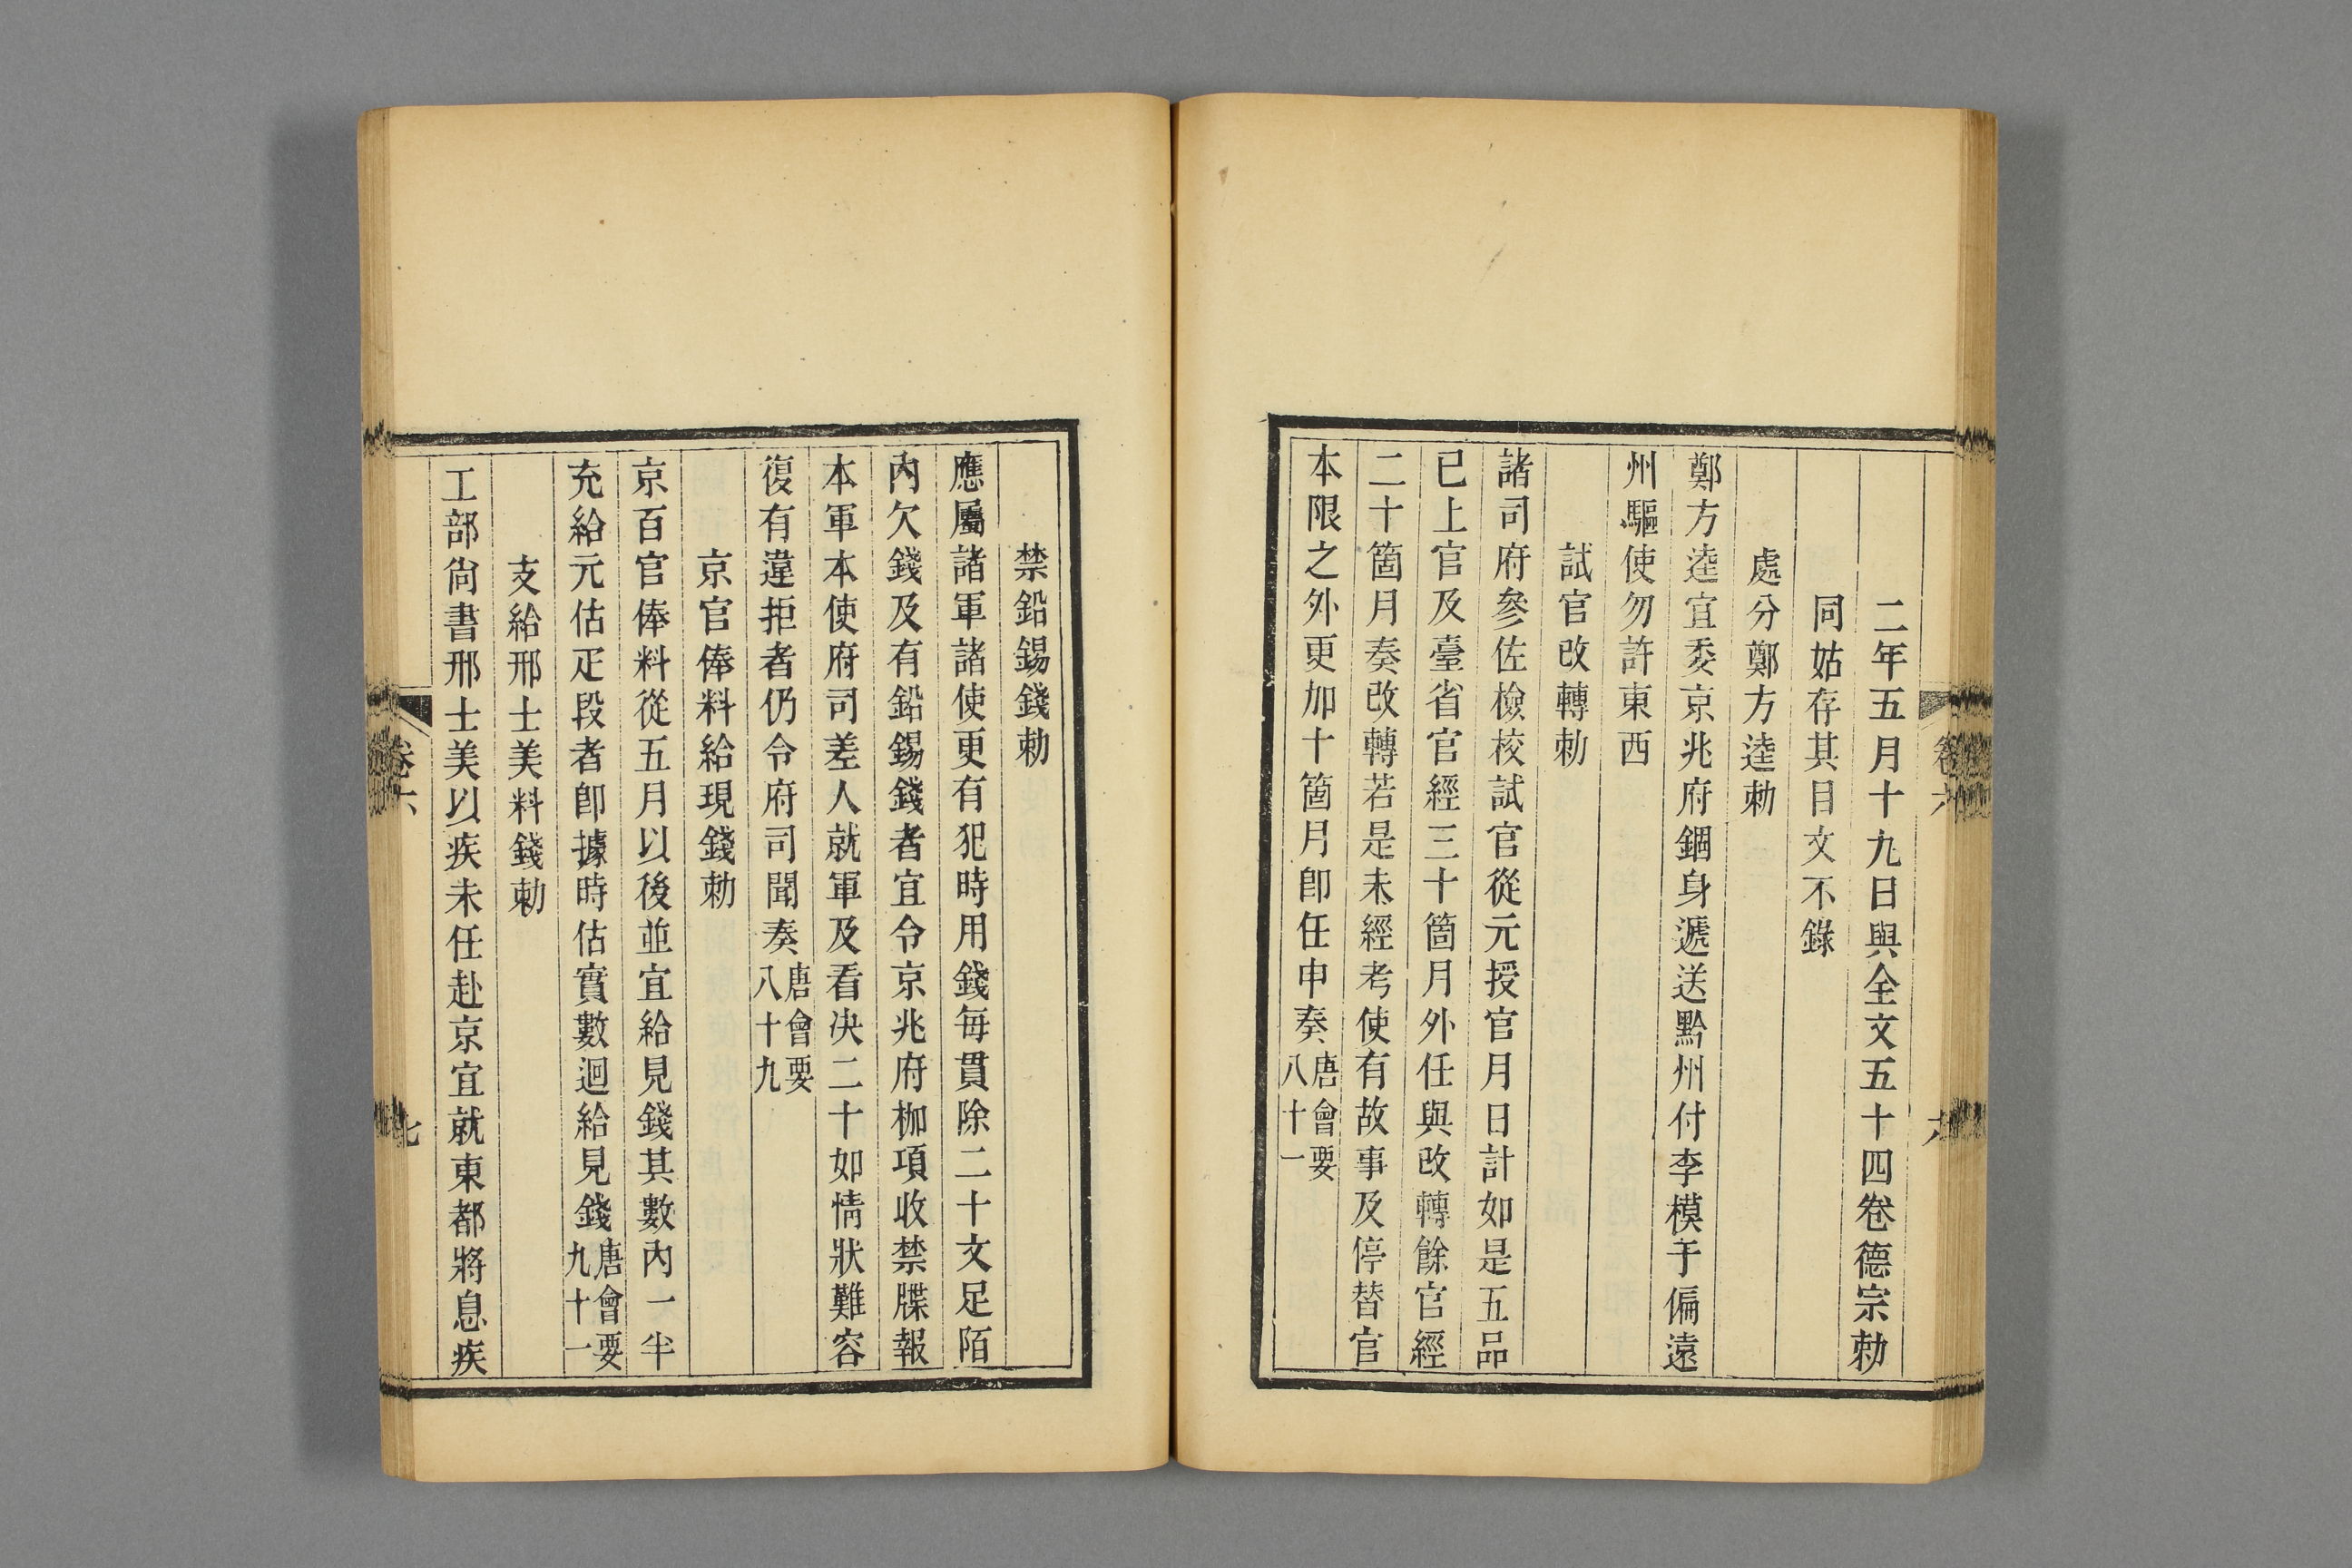 二年五月十九日與全文五十四卷德宗勅
同姑存其目文不錄
處分鄭方逵勅
鄭方逵宜委京兆府錮身遞送黔州付李模于偏遠
州驅使勿許東西
試官改轉勅
諸司府參佐檢校試官從元授官月日計如是五品
已上官及臺省官經三十箇月外任與改轉餘官經
二十箇月奏改轉若是未經考使有故事及停替官
本限之外更加十箇月卽任申奏唐會要
八十一
卷六
六
禁鉛錫錢勅
應屬諸軍諸使更有犯時用錢每貫除二十文足陌
內欠錢及有鉛錫錢者宜令京兆府枷項收禁牒報
本軍本使府司差人就軍及看決二十如情狀難容
復有違拒者仍令府司聞奏唐會要
八十九
京官俸料給現錢勅
京百官俸料從五月以後並宜給見錢其數內一半
充給元估疋段者卽據時估實數迴給見錢唐會要
九十一
支給邢士美料錢勅
工部尙書邢士美以疾未任赴京宜就東都將息疾
卷六
七